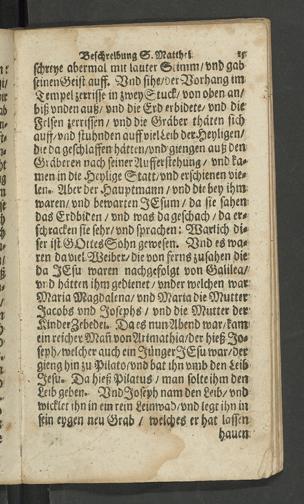 Beschreibung S. Matthei.
schreye abermal mit lauter Stimm/ vnd gab
seinen Geist auff. Vnd sihe/ der Vorhang im
Tempel zerrisse in zwey Stuck/ von oben an/
biß vnden auß/ vnd die Erd erbidete/ vnd die
Felsen zerrissen/ vnd die Gräber thäten sich
auff/ vnd stuhnden auff viel Leib der Heyligen/
die da geschlaffen hätten/ vnd giengen auß den
Gräberen nach seiner Aufferstehung/ vnd ka-
men in die Heylige Statt/ vnd erschienen vie-
len. Aber der Hauptmann/ vnd die bey ihm
waren/ vnd bewarten JEsum/ da sie sahen
das Erdbiden/ vnd was da geschach/ da er-
schracken sie sehr/ vnd sprachen: Warlich di-
ser ist GOttes Sohn gewesen. Vnd es wa-
ren da viel Weiber/ die von ferns zusahen die
da JEsu waren nachgefolgt von Galilea/
vnd hätten ihm gedienet/ vnder welchen war
Maria Magdalena/ vnd Maria die Mutter
Jacobs vnd Josephs/ vnd die Mutter der
Kinder Zebedei. Da es nun Abend war/ kam
ein reicher Mañ von Arimathia/ der hieß Jo-
seph/ welcher auch ein Jünger JEsu war/ der
gieng hin zu Pilato/ vnd bat ihn vmb den Leib
Jesu. Da hieß Pilatus/ man solte ihm den
Leib geben. Vnd Joseph nam den Leib/ vnd
wicklet ihn in ein rein Leinwad/ vnd legt ihn in
sein eygen neu Grab/ welches er hat lassen
hauen